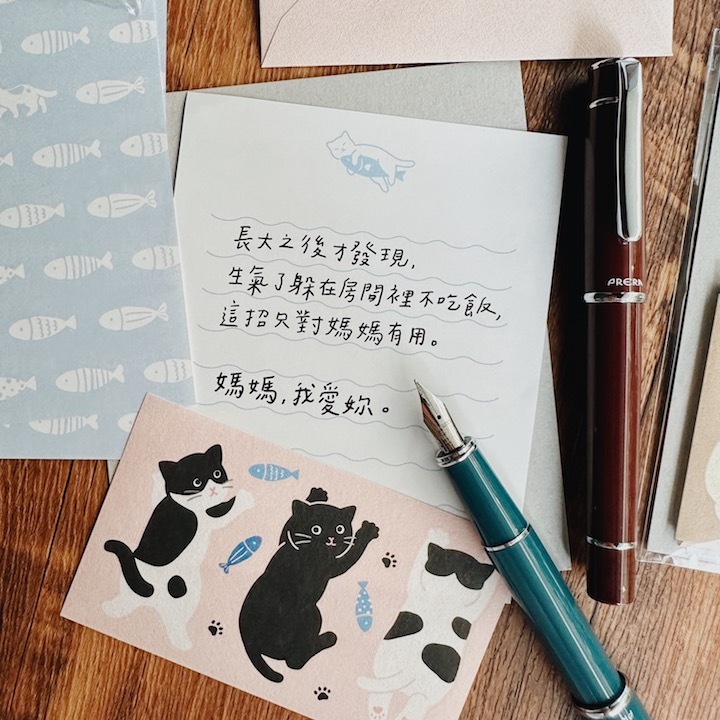 長大之後才發現,
生氣了躲在房間裡不吃飯,
這招只對媽媽有用。
媽媽,我愛妳。
PRERA